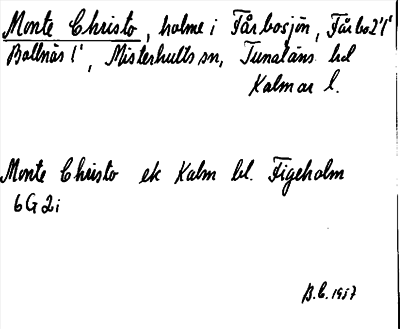 Monte Christo, holme i Fårbosjön, Fårbo 2¹1¹
Ballnäs 1¹, Misterhults sn, Tunaläns hd
Kalmar l.
Monte Christo ek Kalm bl. Figeholm
6G 2i
B.C. 1957